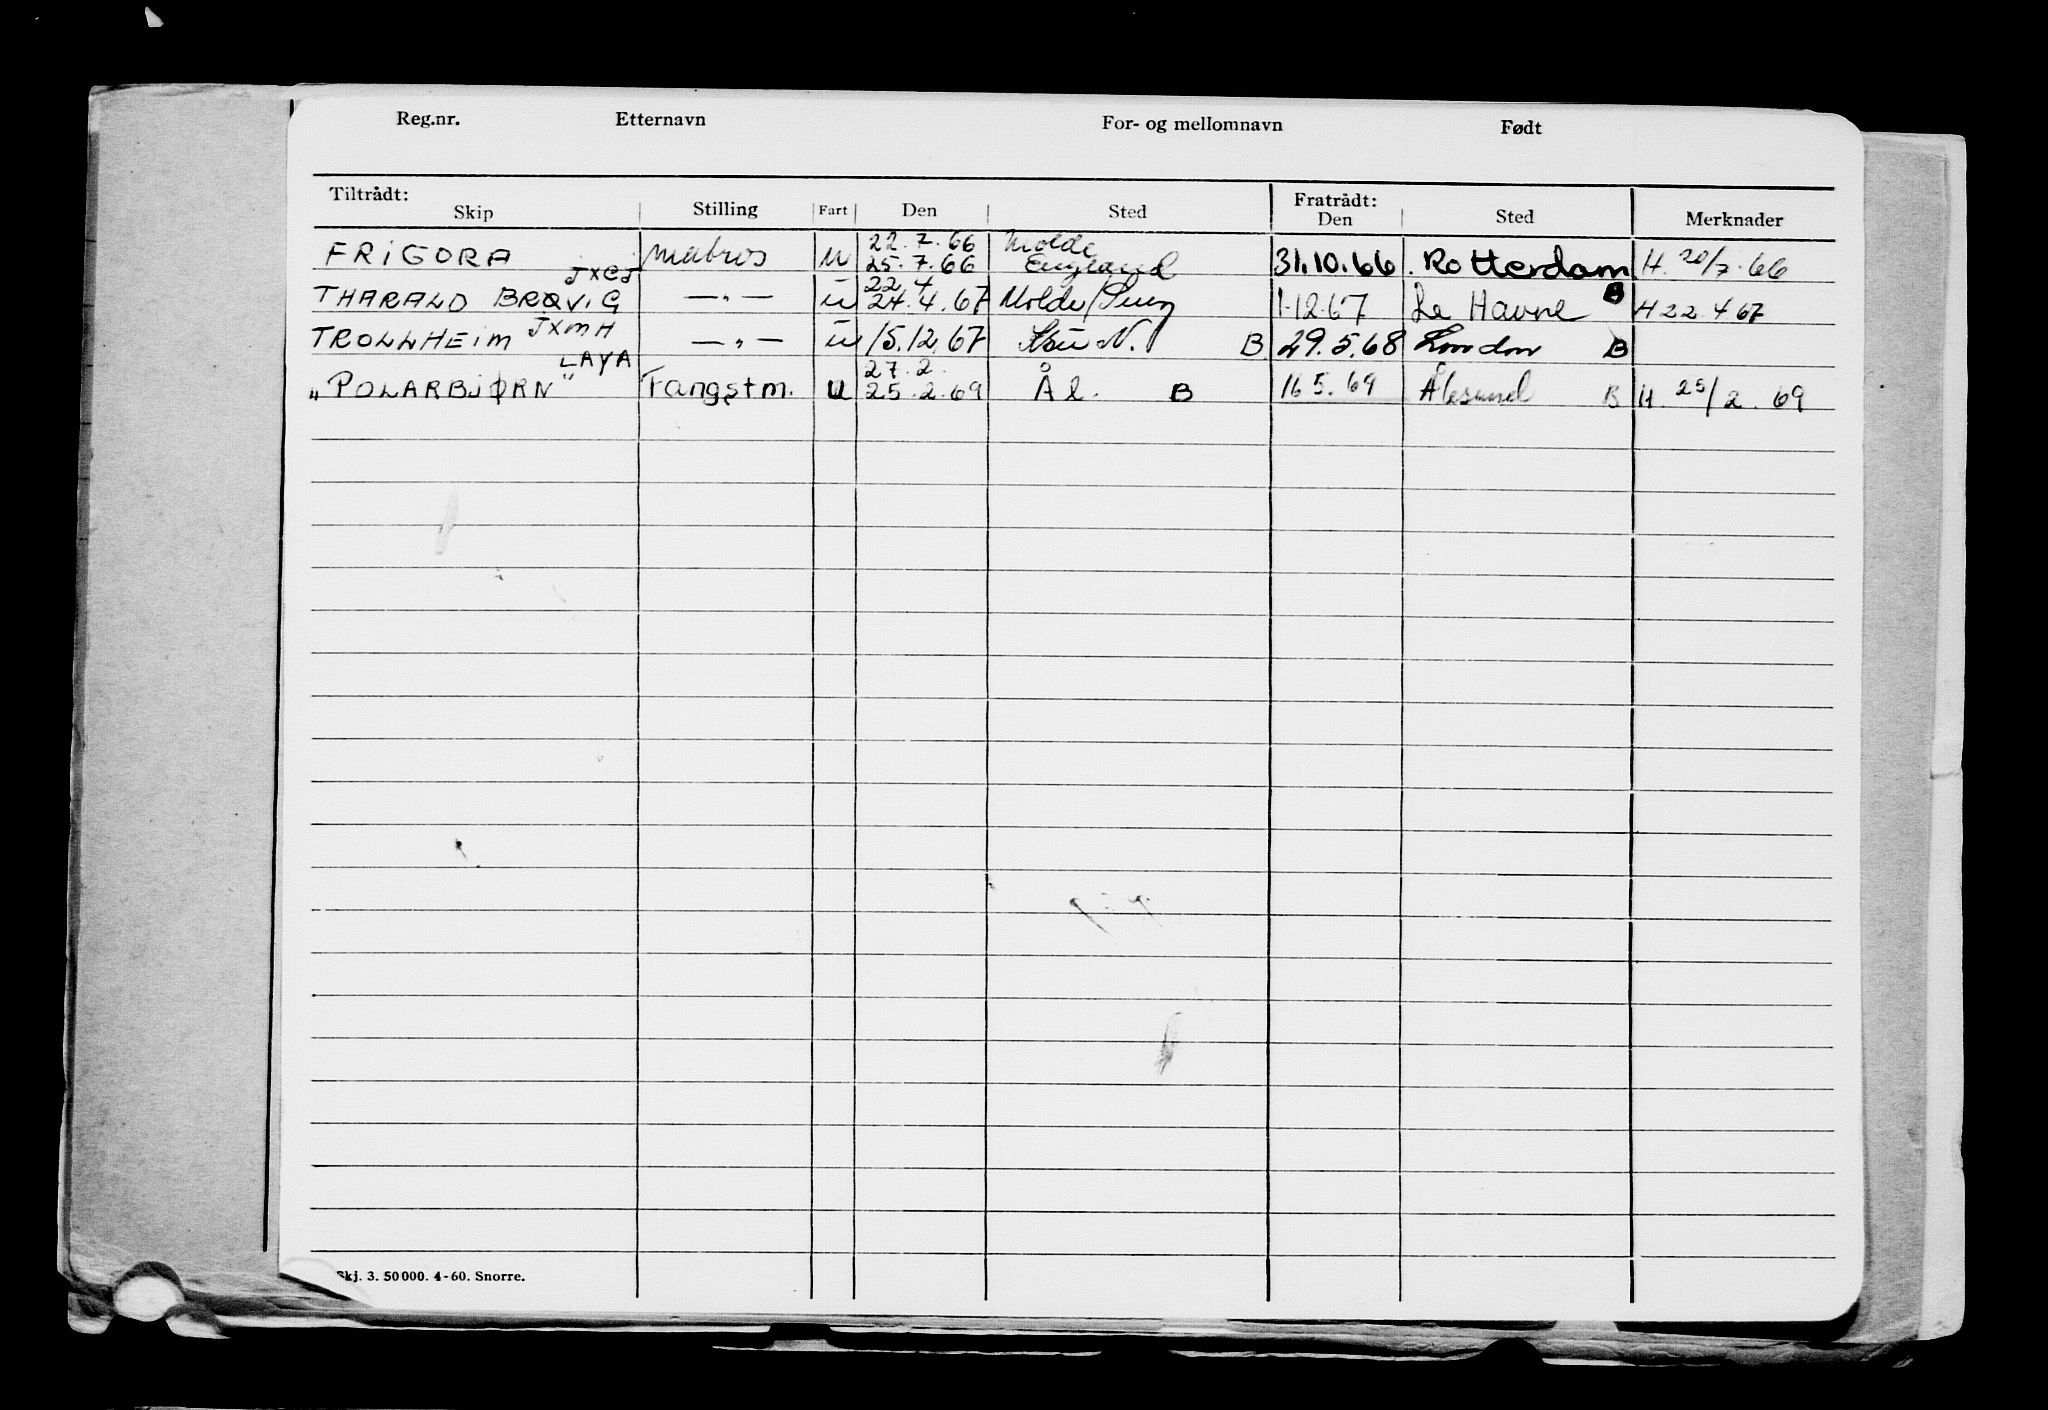 Reg.nr. Etternavn For- og mellomnavn Født
Tiltrådt: Fratrådt:
Skip Stilling Fart Den Sted Den Sted Merknader
22.7.66 Molde
FRiGORA Matros U 25.7.66 England 31.10.66 Rotterdam H. 20/7.66
JXCJ 22 4
THARALD BRØVIG —"— U 24.4.67 Molde/ 1-12.67 Le Havre B H 22.4 67
TROLLHEiM JXMH —"— U 15.12.67 N. B 29.5.68 London B
LAYA 27.2.
"POLARBJØRN" Fangstm. U 25.2.69 Ål. B 16 5.69 Ålesund B H. 25/2.69
Skj. 3. 50 000. 4-60. Snorre.